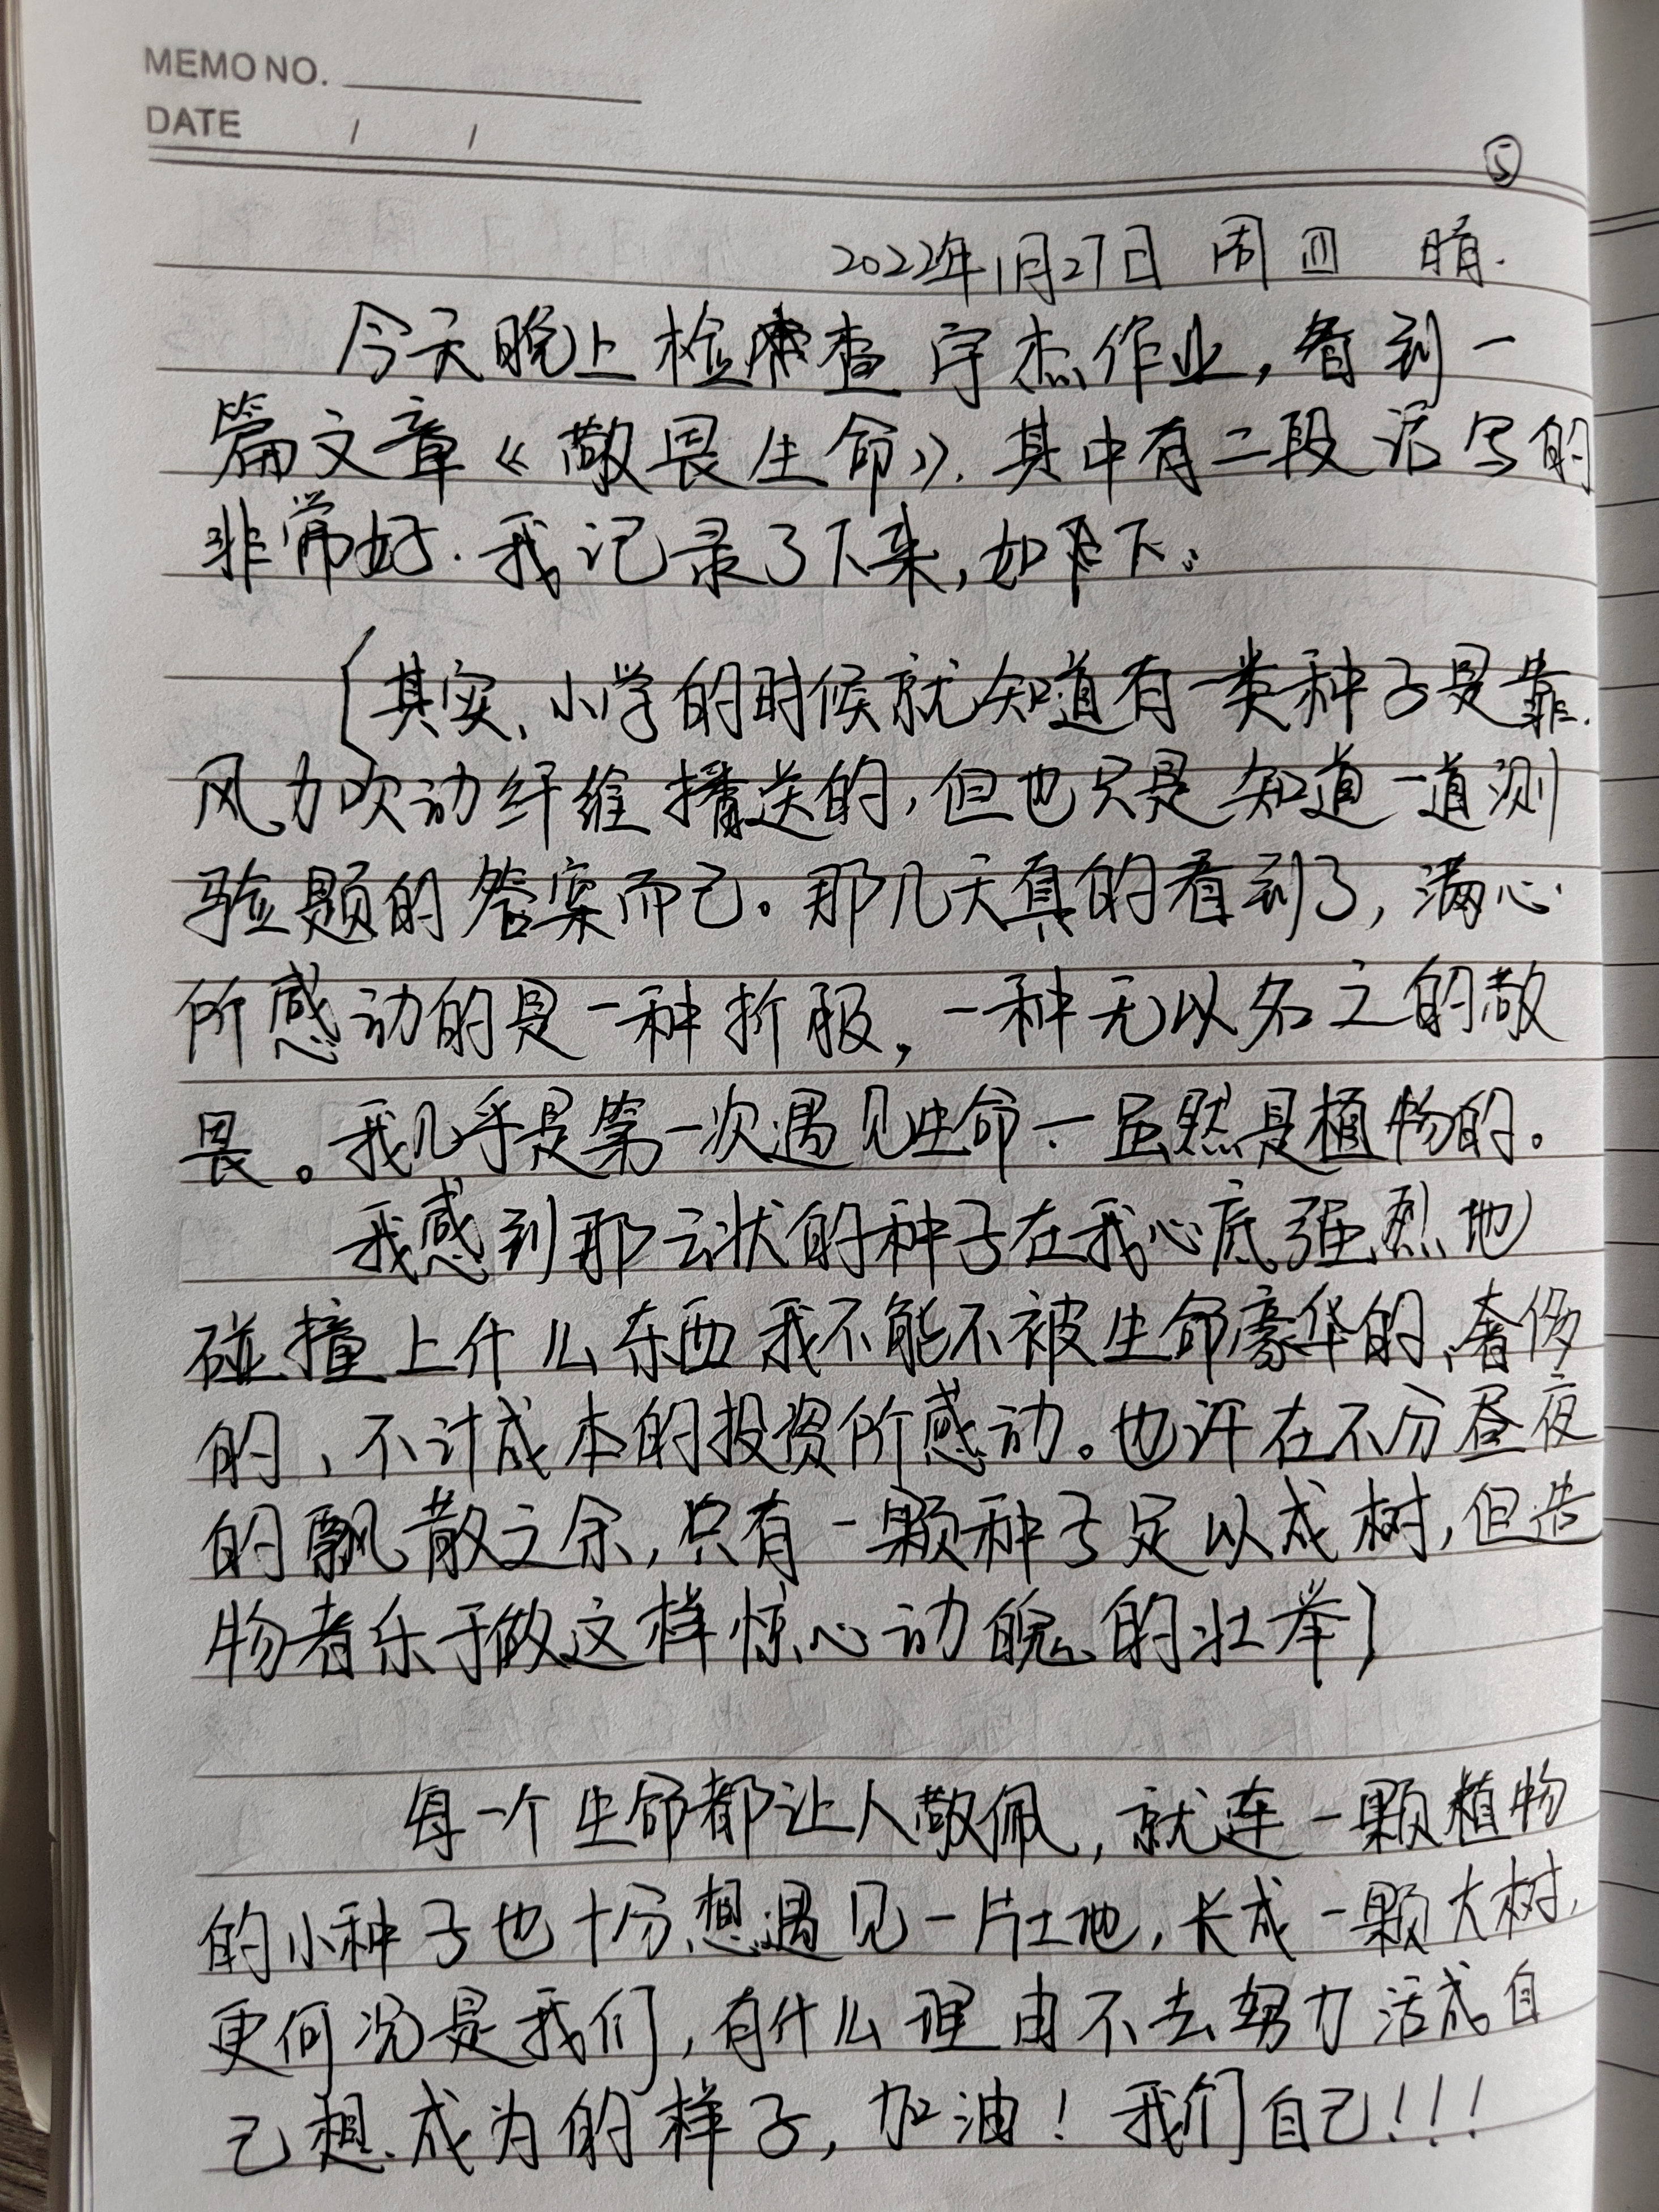 MEMO NO.
DATE / /
⑤
2022年1月27日 周四 晴.
今天晚上检查宇杰作业,看到一
篇文章《敬畏生命》.其中有二段话写的
非常好.我记录了下来,如下:
〔其实、小学的时候就知道有一类种子是靠
风力吹动纤维播送的,但也只是知道一道测
验题的答案而已。那几天真的看到了,满心
所感动的是一种折服,一种无以名之的敬
畏。我几乎是第一次遇见生命一虽然是植物的。
我感到那云状的种子在我心底强烈地
碰撞上什么东西我不能不被生命豪华的、奢侈
的、不计成本的投资所感动。也许在不分昼夜
的飘散之余,只有一颗种子足以成树,但造
物者乐于做这样惊心动魄的壮举〕
每一个生命都让人敬佩,就连一颗植物
的小种子也十分想遇见一片土地,长成一颗大树,
更何况是我们,有什么理由不去努力活成自
己想成为的样子,加油!我们自己!!!